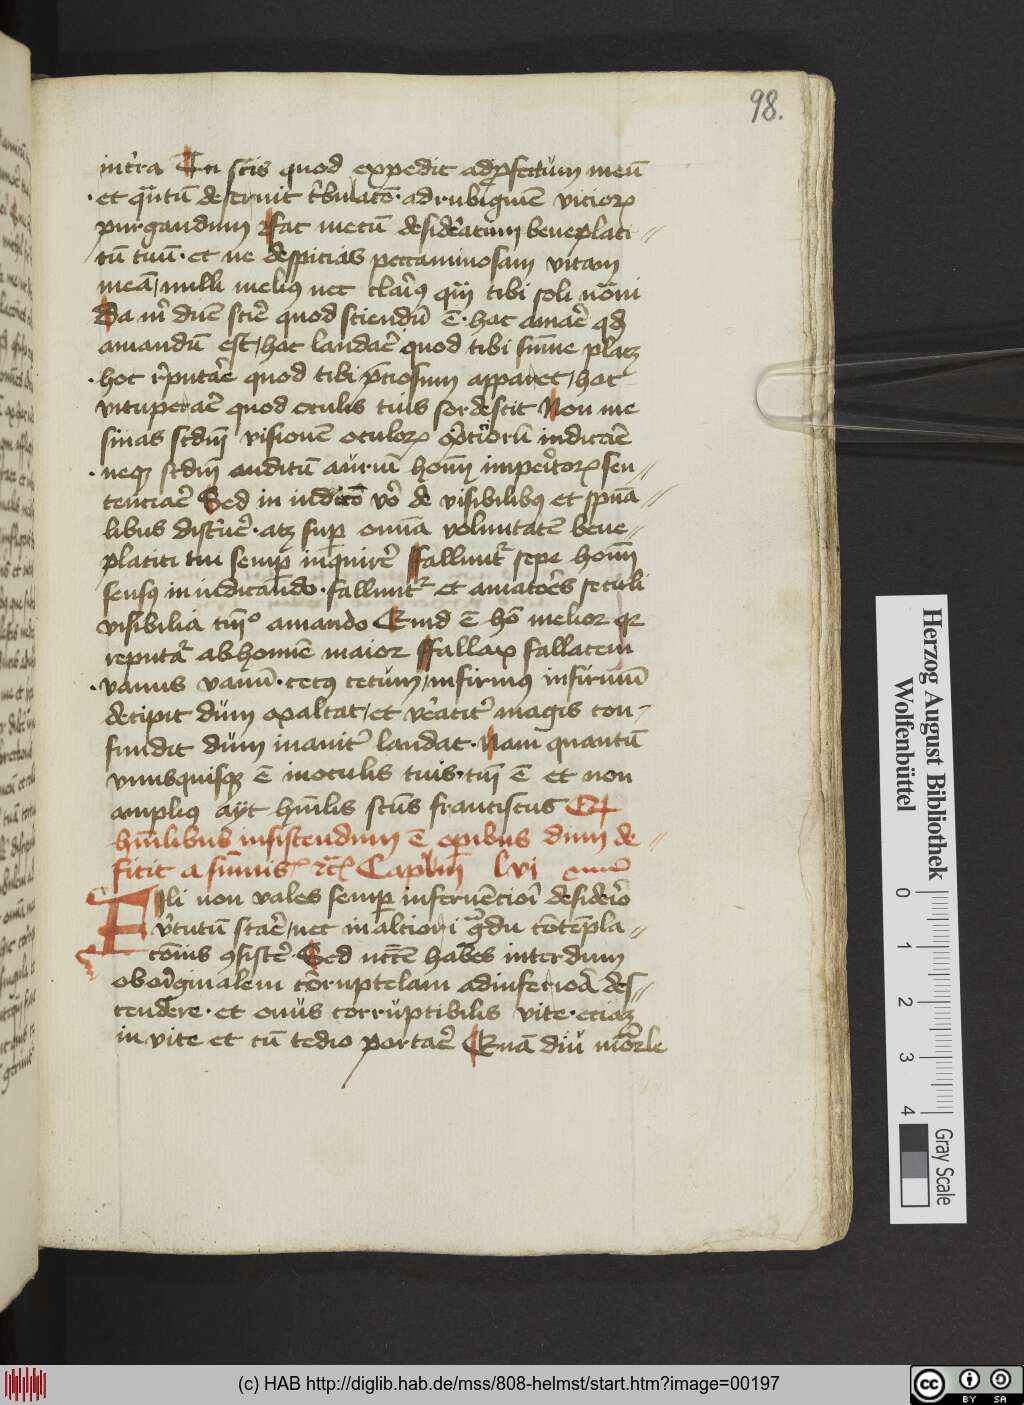 98.
int̄ra Tu scis quod expedit ad ꝓfectum meū
et qͣntū deseruit tͥbulacō ad rubiginē vicioꝝ
purgandum Fac mecū desideratum beneplaci
tū tuū · et ne despicias peccaminosam vitam
meā / nulli meliꝰ nec clariꝰ qͣm tibi soli notā
Da m̄ dn̄e scir̄e quod sciendū ē · hoc amar̄e qd
amandū est / hoc laudar̄e quod tibi sūme placꝫ
hoc reputar̄e quod tibi p̄ciosum apparet / hoc
vituperar̄e quod oculis tuis sordescit Non me
sinas scdm̄ visionē oculoꝝ exterioꝝ iudicar̄e
neqꝫ scdm̄ auditū auriū hoīm imperitoꝝ sen
tenciar̄e Sed in iudicō vero de visibilibꝰ et spūa
libus discern̄e · atqꝫ suꝑ omīa voluntatē bene
placiti tui semꝑ inquirer̄e ffalluntͬ sepe hoīm
sensꝰ in iudicando · falluntͬ et amatores seculi
visibilia tm̄º amando Quid ē hō melior qꝛ
reputatͬ ab homīe maior ffallax fallacem
vanus vanū · cecꝰ cecum / infirmꝰ infirmū
decipit dum exaltat / et veracitͬ magis con
fundit dum inanitͬ laudat · Nam quantū
vnusquisqꝫ ē in oculis tuis · tm̄ ē et non
ampliꝰ ayt hūilis scūs franciscus Qꝫ
hūilibus insistendum ē oꝑibus dum de
ficit a sūmis · rc̄ · Caplm̄ lvi
Fili non vales semꝑ in feruēciori desiderio
v̓tutū star̄e / nec in altiori gͣdu cōtēpla
cōnis ꝯsister̄e · Sed nc̄cē habes interdum
ob originalem corruptelam ad inferiora des
cendere · et onus corruptibilis vite · eciaꝫ
in vite et cū tedio portar̄e Quā diu mortale
Herzog August Bibliothek
Wolfenbüttel
0 1 2 3 4
Gray Scale
(c) HAB http://diglib.hab.de/mss/808-helmst/start.htm?image=00197
cc BY SA